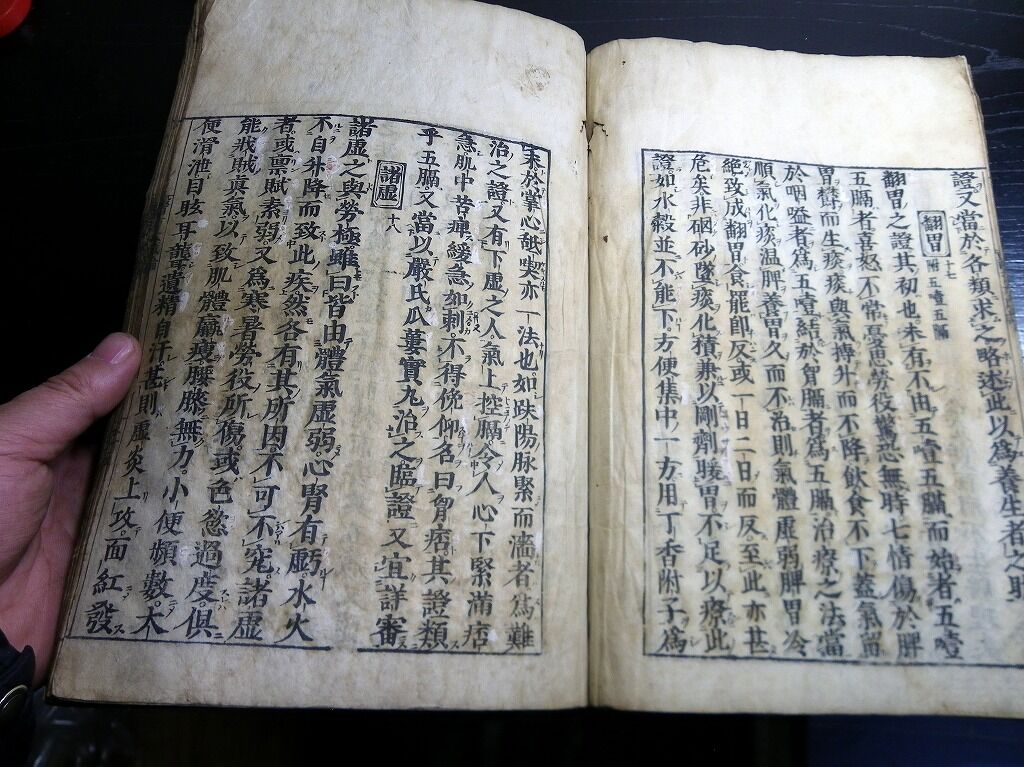 證又當於各類求之略述此以爲養生者之助
翻胃 十七 附五噎五膈
翻胃之證其初也未有不由五噎五膈而始者五噎
五膈者喜怒不常憂思勞役驚恐無時七情傷於脾
胃欝而生痰痰與氣搏升而不降飲食不下蓋氣留
於咽嗌者爲五噎結於胷膈者爲五膈治療之法當
順氣化痰溫脾養胃久而不治則氣體虛弱脾胃冷
絕致成翻胃食罷即反或一日二日而反至此亦甚
危矣非硇砂墜痰化積兼以剛劑暖胃不足以療此
證如水穀並不能下方便集中一方用丁香附子爲
末於掌心䑛喫亦一法也如趺陽脉緊而濇者爲難
治之證又有下虛之人氣上控膈令人心下緊滿痞
急肌中苦痺緩急如刺不得俛仰名曰胷痞其證類
乎五膈又當以嚴氏瓜蔞實丸治之臨證又宜詳審
諸虛 十八
諸虛之與勞極雖曰皆由體氣虛弱心腎有虧水火
不自升降而致此疾然各有其所因不可不究諸虛
者或禀賦素弱又爲寒暑勞役所傷或色慾過度俱
能戕賊真氣以致肌體羸瘦腰膝無力小便頻數大
便滑泄目眩耳聾遺精自汗甚則虛炎上攻面紅發